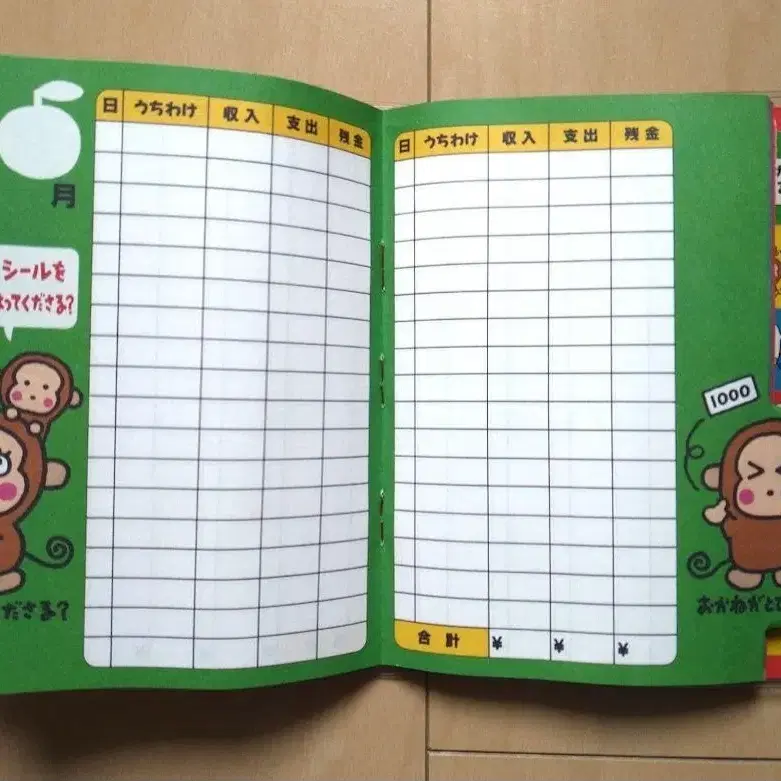 月
シールを
ってくださる?
ださる?
日 うちわけ 収入 支出 残金
日 うちわけ 収入 支出 残金
合計 ¥ ¥ ¥
1000
おかねがと